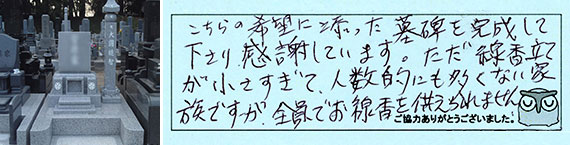 こちらの希望に添った墓碑を完成して
下さり、感謝しています。ただ線香立て
が小さすぎて、人数的にも多くない家
族ですが、全員でお線香を供えられません
ご協力ありがとうございました。